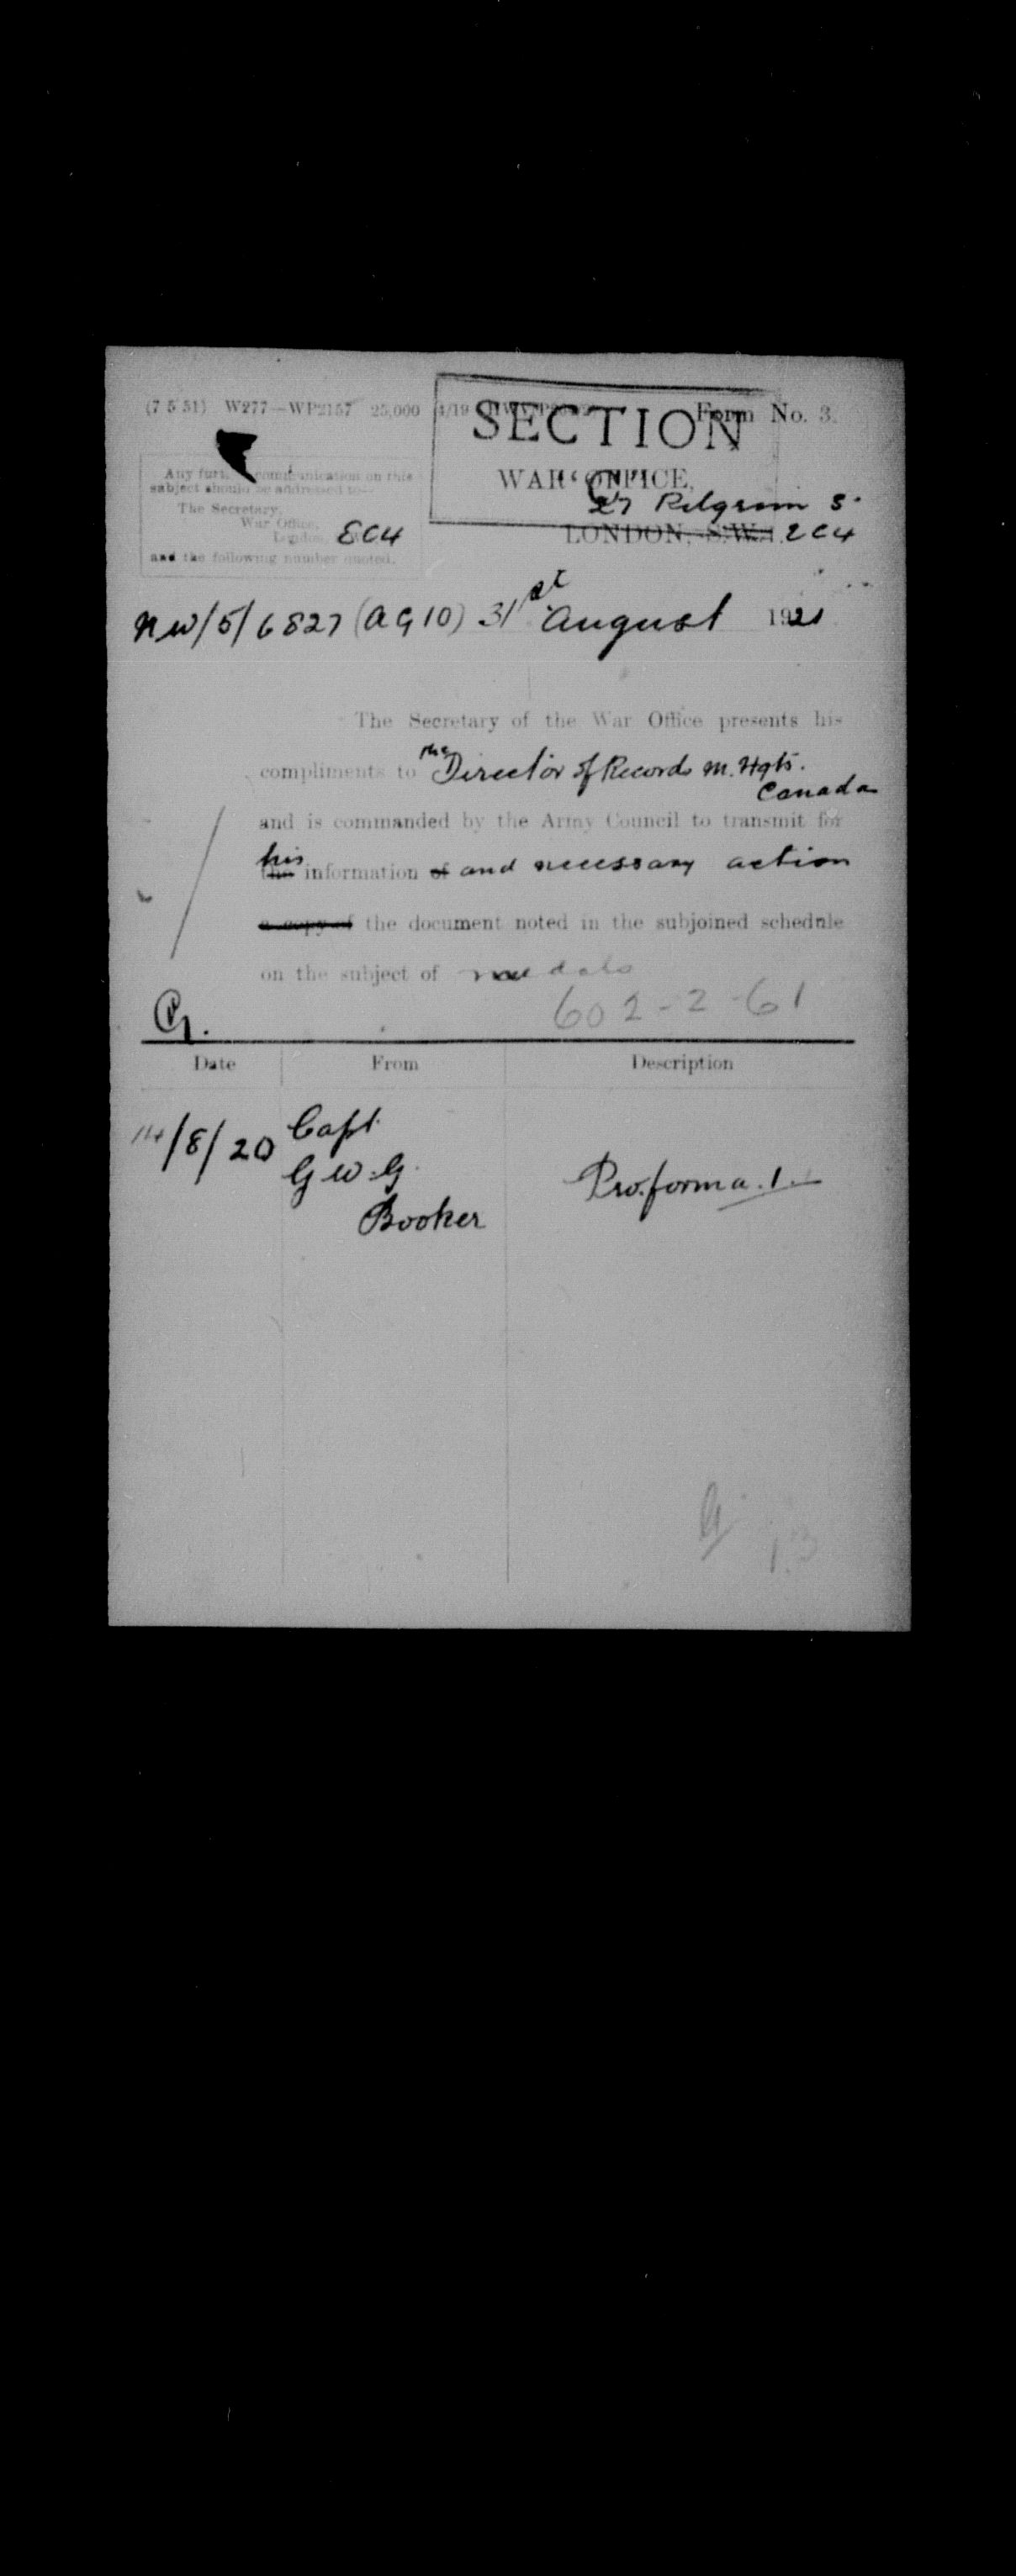 (7 5 51) W277—WP2157 25,000 4/19 Form No. 3.
SECTION
WAR OFFICE,
27 Pilgrim S.
LONDON, S.W.1. EC4
Any further communication on this
subject should be addressed to—
The Secretary,
War Office,
London, EC4
and the following number quoted.
NW/5/6827 (AG10) 31st August 1921
The Secretary of the War Office presents his
compliments to the Director of Records M. Hqts.
Canada
and is commanded by the Army Council to transmit for
his the information of and necessary action
a copy of the document noted in the subjoined schedule
on the subject of medals
602-2-61
G.
Date From Description
14/8/20 Capt.
G W. G.
Booker
Pro.forma.1.